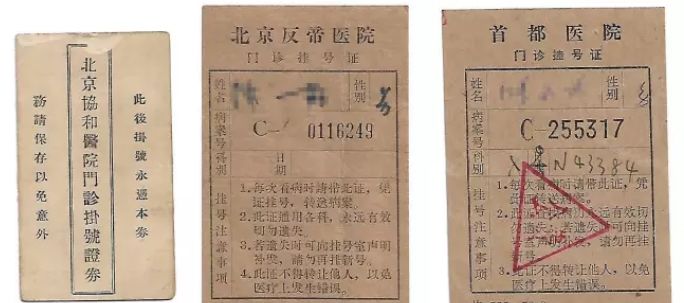 此後掛號永遠本券
北京協和醫院門診掛號證券
務請保存以免意外
北京反帝医院
门诊挂号证
姓名
性别
男
病案号
C-
0116249
科别
日期
挂号注意事项
1.每次看病时请带此证，凭
证挂号，转送病案。
2.此证通用各科，永远有效
切勿遗失。
3.若遗失时可向挂号室声明
补发，请勿再挂新号。
4.此证不得转让他人，以免
医疗上发生错误。
首都医院
门诊挂号证
姓名
性别
病案号
C-255317
科别
N43384
挂号注意事项
1.每次看病时请带此证，凭
证挂号转送病案。
永远有效切
勿遗失。
声明补发，请勿再挂
3.此证不得转让他人，以免
医疗上发生错误。